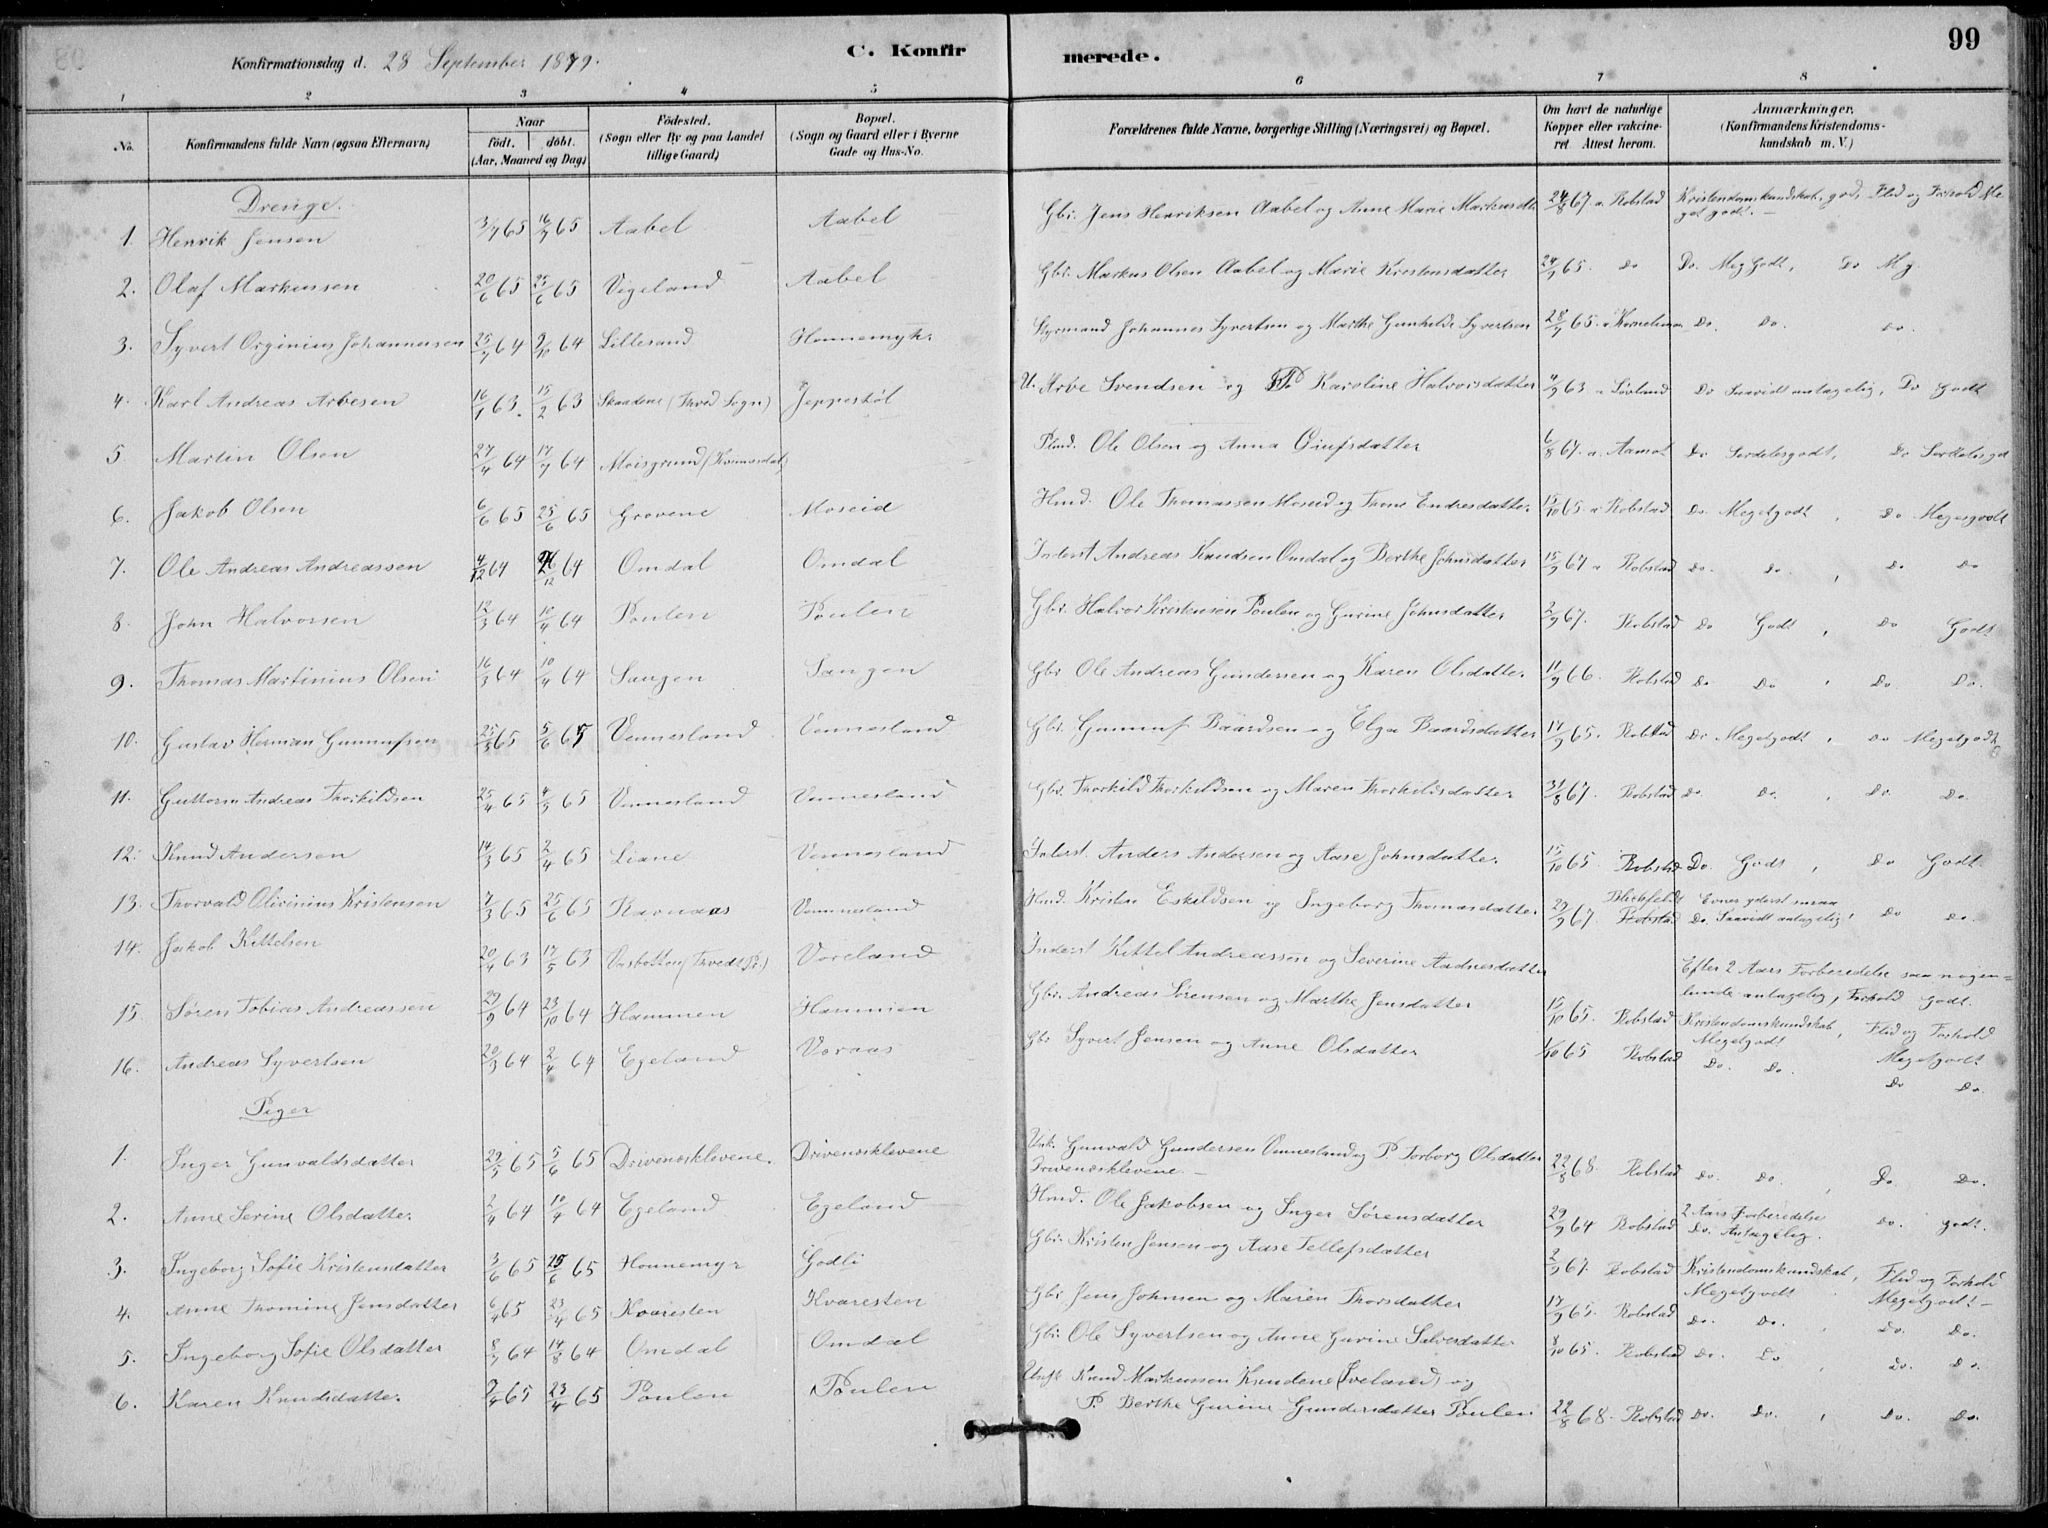 99
C. Konfirmerede.
Konfirmationsdag d. 28 September 1879.
1 2 3 4 5 6 7 8
No. Konfirmandens fulde Navn (ogsaa Efternavn) Naar født. døbt. (Aar, Maaned og Dag) Fødested. (Sogn eller By og paa Landet tillige Gaard) Bopæl. (Sogn og Gaard eller i Byerne Gade og Hus-No. Forældrenes fulde Navne, borgerlige Stilling (Næringsvei) og Bopæl. Om havt de naturlige Kopper eller vakcineret. Attest herom. Anmærkninger. (Konfirmandens Kristendomskundskab m. V.)
Drenge.
1. Henrik Jensen 3/7 65 16/7 65 Aabel Aabel Gbr. Jens Henriksen Aabel og Anne Marie Markusdtr 24/8 67 a. Robstad Kristendomskundskab god, Flid og Forhold Meget godt.
2. Olaf Markussen 20/6 65 25/6 65 Vigeland Aabel Gbr. Markus Olsen Aabel og Marie Kristensdatter 24/9 65 Do Do. Meg Godt, Do Mg
3. Syvert Orginius Johannesen 25/7 64 2/10 64 Lillesand Honnemyh. Styrmand Johannes Syvertsen og Marthe Gunhilde Syvertsen 28/7 65 a Kornelius Do. Do. Do.
4. Karl Andreas Arvesen 16/1 63. 15/2 63 Skaadene (Thved Sogn) Jeppestøl U. Arve Svendsen og P. Karoline Halvorsdatter 4/9 63 a Sørland Do Saavidt antagelig, Do Godt
5. Martin Olsen 27/4 64 17/7 64 Moisgrund Plmd. Ole Olsen og Anna 6/8 67. a. Aamot Do Serdelesgodt, Do Serdelesgd
6. Jakob Olsen 6/6 65 25/6 65 Grovene Moseid Hmd. Ole Thomassen Moseid og Thone Endresdatter 15/10 65 a Robstad Do. Megetgodt, Do Megetgodt
7. Ole Andreas Andreassen 4/12 64 26/12 64 Omdal Omdal Inderst Andreas Knudsen Omdal og Berthe Johnsdatter 15/9 67 a Robstad Do. Do. , Do Do
8. John Halvorsen 12/3 64 10/4 64 Poulen Poulen Gbr. Halvor Kristensen Poulen og Gurine Johnsdatter 2/9 67. Robstad Do Godt, Do Godt
9. Thomas Martinius Olsen 16/3 64 10/4 64 Sangen Sangen Gbr Ole Andreas Gundersen og Karen Olsdatter 11/9 66. Robstad Do Do , Do. Do.
10. Gustav Herman Gunnufsen 25/5 65 5/6 65 Vennesland Vennesland Gbr. Gunnuf Baardsen og Elga Baardsdatter 17/9 65. Robstad Do Megetgodt, Do Megetgodt
11. Guttorm Andreas Thorkildsen 25/4 65 4/5 65 Vennesland Vennesland Gbr. Thorkild Thorkildsen og Maren Thorkildsdatter 31/8 67. Robstad Do. Do. , Do. Do.
12. Knud Andersen 14/3 65 2/4 65 Liane Vennesland Inderst. Anders Andersen og Aase Johnsdatter. 15/10 65. Robstad Do. Godt, Do Godt.
13. Thorvald Olivinius Kristensen 7/3 65 25/6 65 Ravnaas Vennesland Hmd. Kristen Eskildsen og Ingeborg Thomasdatter 29/9 67. Blickfeldt Robstad Evner yderst smaa Do. Saavidt antagelig, Do Do.
14. Jakob Kittelsen 20/4 63 17/5 63 Vasbotten (Tvedt Pr.) Voreland Inderst Kittel Andreassen og Severine Aadnesdatter Efter 2 Aars Forberedelse saa nogenlunde antagelig, Forhold godt.
15. Søren Tobias Andreassen 29/9 64 23/10 64 Hammen Hammen Gbr. Andreas Sørensen og Marthe Jensdatter 15/10 65. Robstad Kristendomskundskab, Megetgodt Flid og Forhold Megetgodt
16. Andreas Syvertsen 20/3 64 2/4 64 Egeland Voraas Gbr Syvert Jensen og Anne Olsdatter 1/10 65 Robstad Do. Do. Do Do.
Piger
1. Inger Gunvaldsdatter 29/5 65 5/6 65 Drivenesklevene. Drivenesklevene Unk. Gunvald Gundersen Omnesland og P. Torborg Olsdatter Drivenesklevene 22/8 68. Robstad Do. Do. , Do. Do.
2. Anne Serine Olsdatter 2/4 64 10/4 64 Egeland Egeland Hmd. Ole Jakobsen og Inger Sørensdatter 29/9 64 Robstad 2 Aars Forberedelse Do. Antagelig. Do. godt.
3. Ingeborg Sofie Kristensdatter 3/6 65 25/6 65 Honnemyr Godli Gbr. Kristen Jensen og Aase Tellefsdatter 2/9 67. Robstad Kristendomskundskab, Megetgodt Flid og Forhold Megetgodt
4. Anne Thomine Jensdatter 6/4 65 23/4 65 Kvaresten Kvaresten Gbr. Jens Johnsen og Maren Thorsdatter 17/9 65. Robstad Do. Do. , Do. Do.
5. Ingeborg Sofie Olsdatter 8/7 64 14/8 64 Omdal Omdal Gbr. Ole Syvertsen og Anne Gurine Salvesdatter 8/10 65. Robstad Do. Do , Do. Do.
6. Karen Knudsdatter. 9/4 65 23/4 65 Poulen Poulen Ungk. Knud Markussen Knudene (Iveland) og
P. Berthe Gurine Gundersdatter Poulen 22/8 68. Robstad Do. Do. , Do. Do.